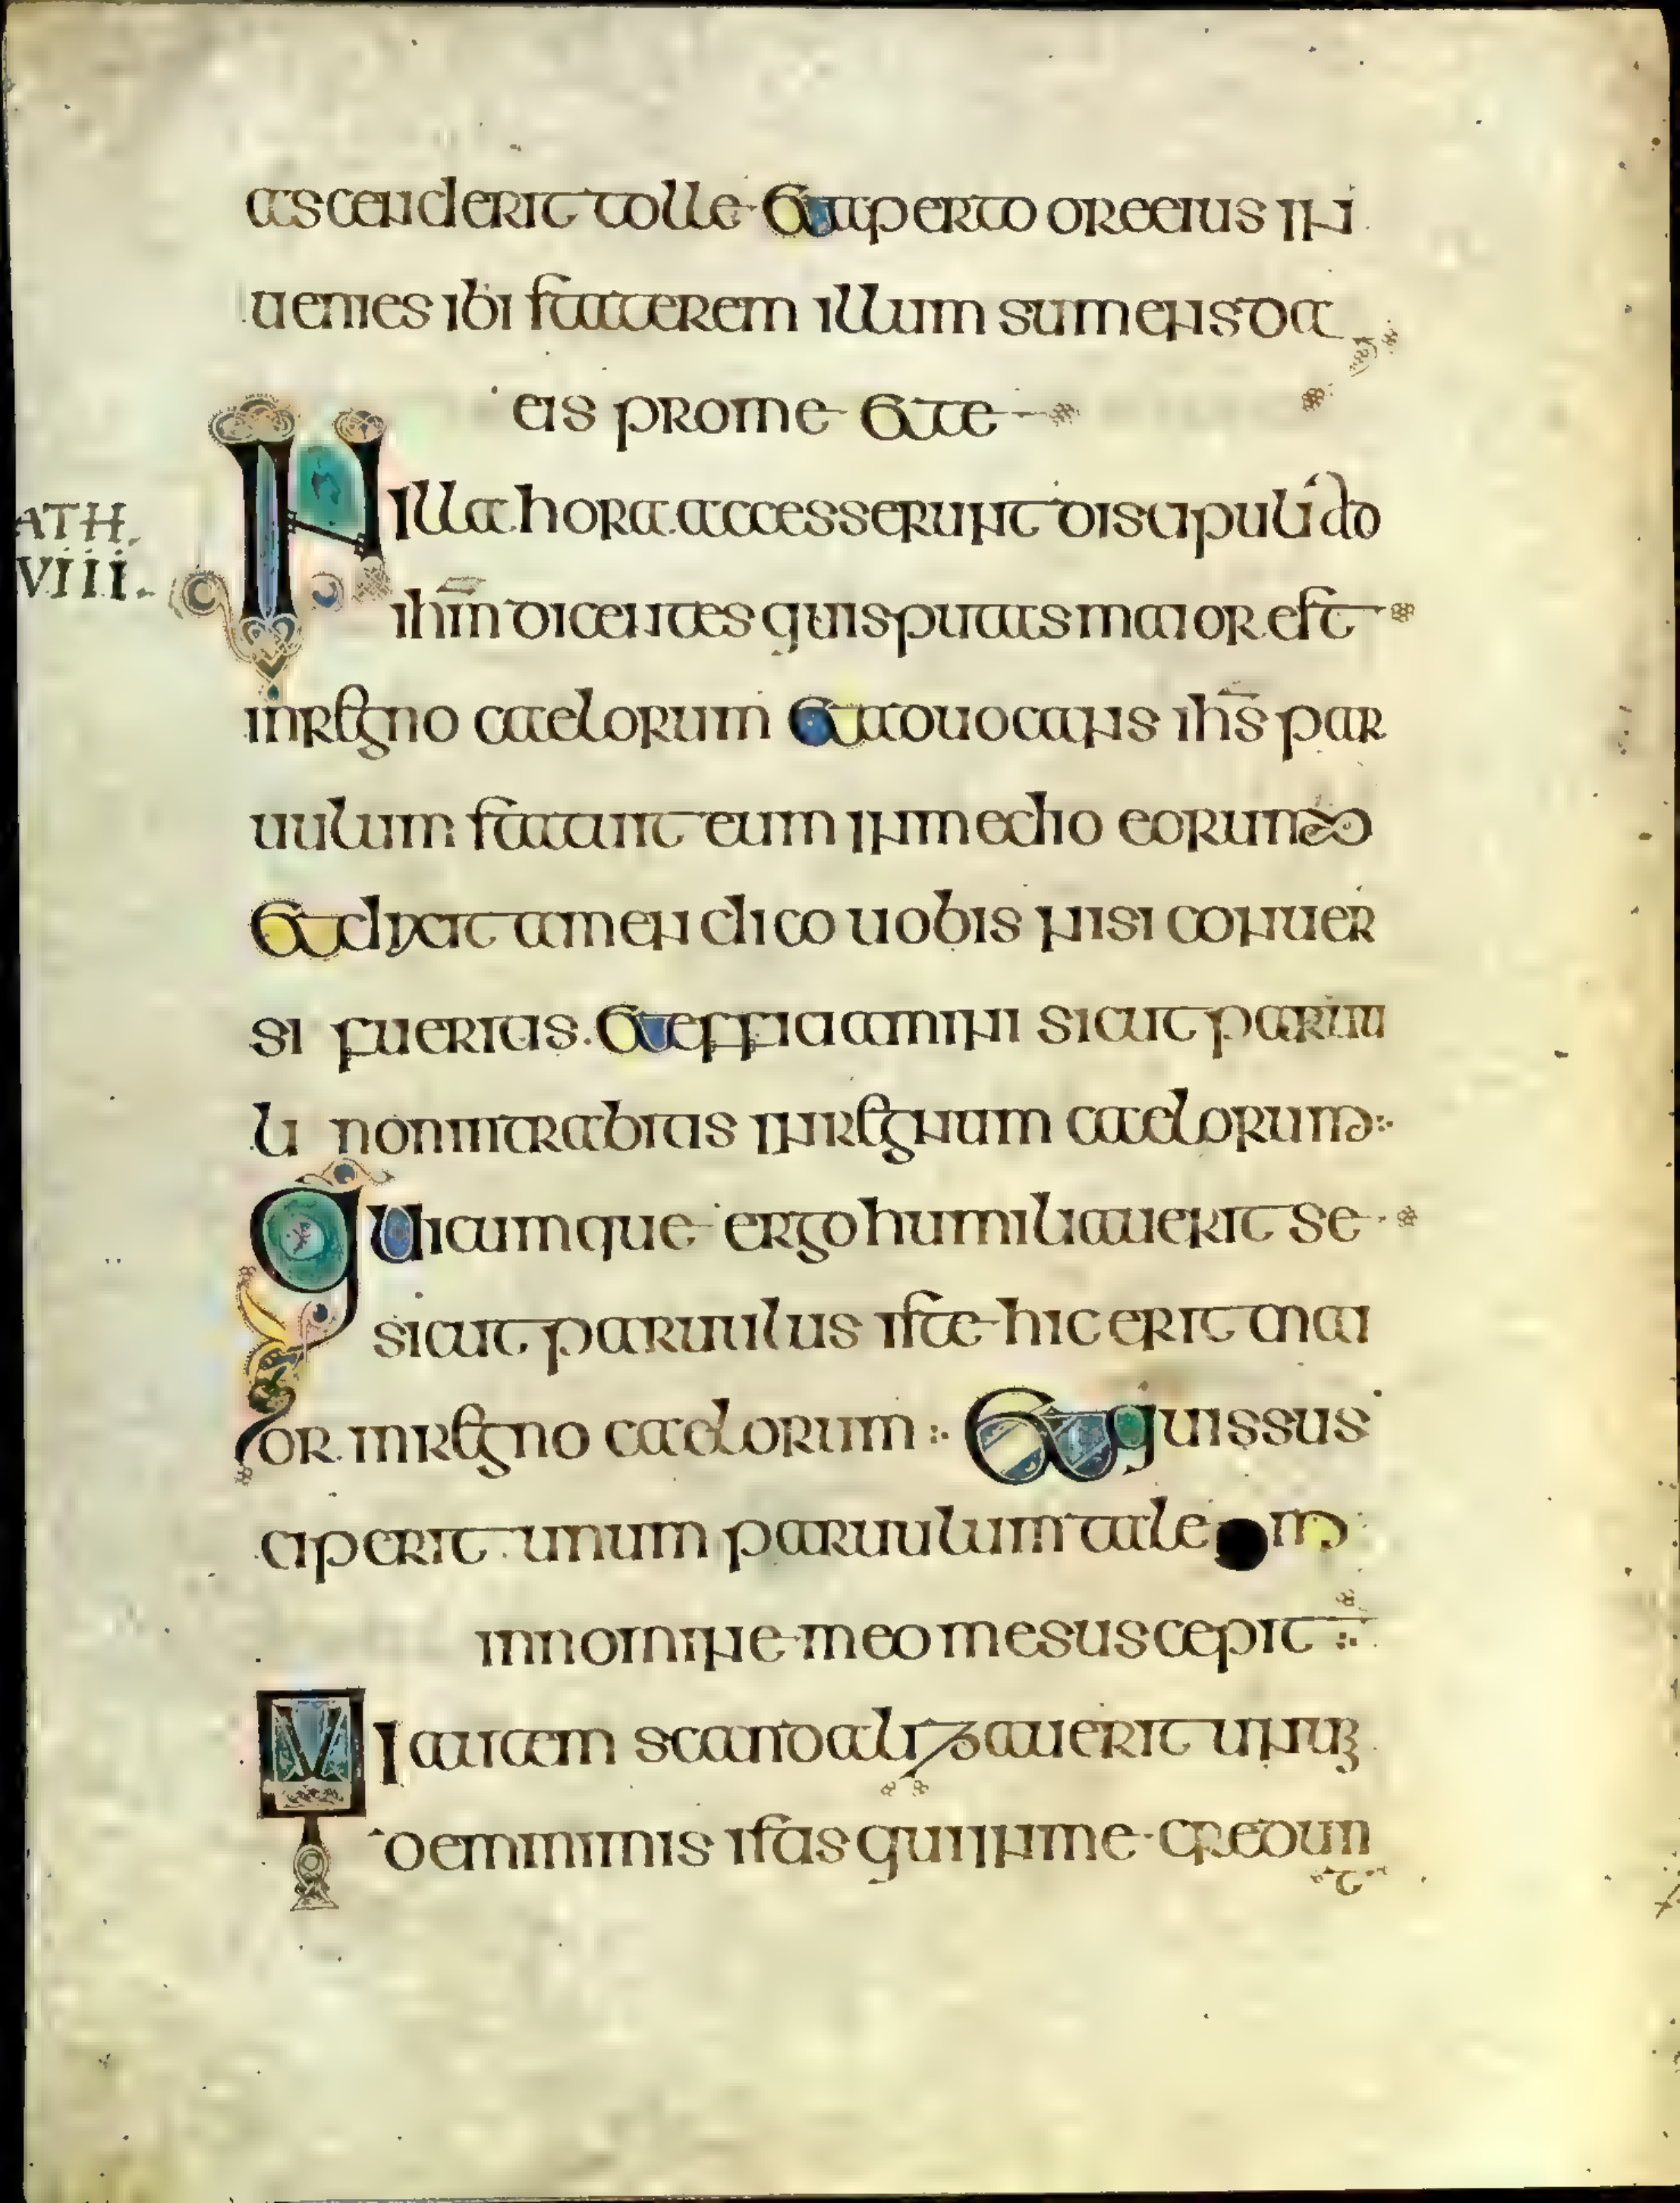 ascenderit tolle et aperto ore eius in
uenies ibi staterem illum sumens da
eis pro me et te
IN illa hora accesserunt discipuli ad
ATH.
VIII.
ihm dicentes quis putas maior est
in regno caelorum et aduocans ihs par
uulum statuit eum in medio eorum
et dixit amen dico uobis nisi conuer
si fueritis. et efficiamini sicut paruu
li non intrabitis in regnum caelorum
Quicumque ergo humiliauerit se
sicut paruulus iste hic erit mai
or in regno caelorum Et qui sus
ciperit unum paruulum talem
in nomine meo me suscepit
QVI autem scandalizauerit unum
de minimis istis qui in me credun
t